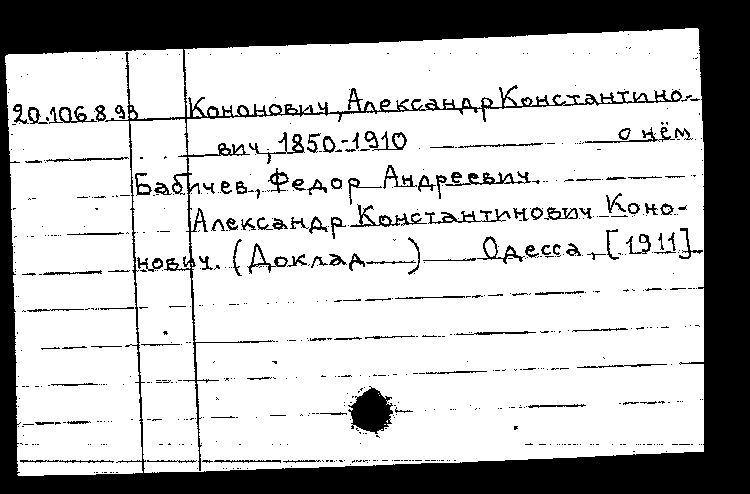 20.106.8.93 Кононович, Александр Константино-
вич, 1850-1910 о нём
Бабичев, Федор Андреевич.
Александр Константинович Коно-
нович. (Доклад ) Одесса, [1911]